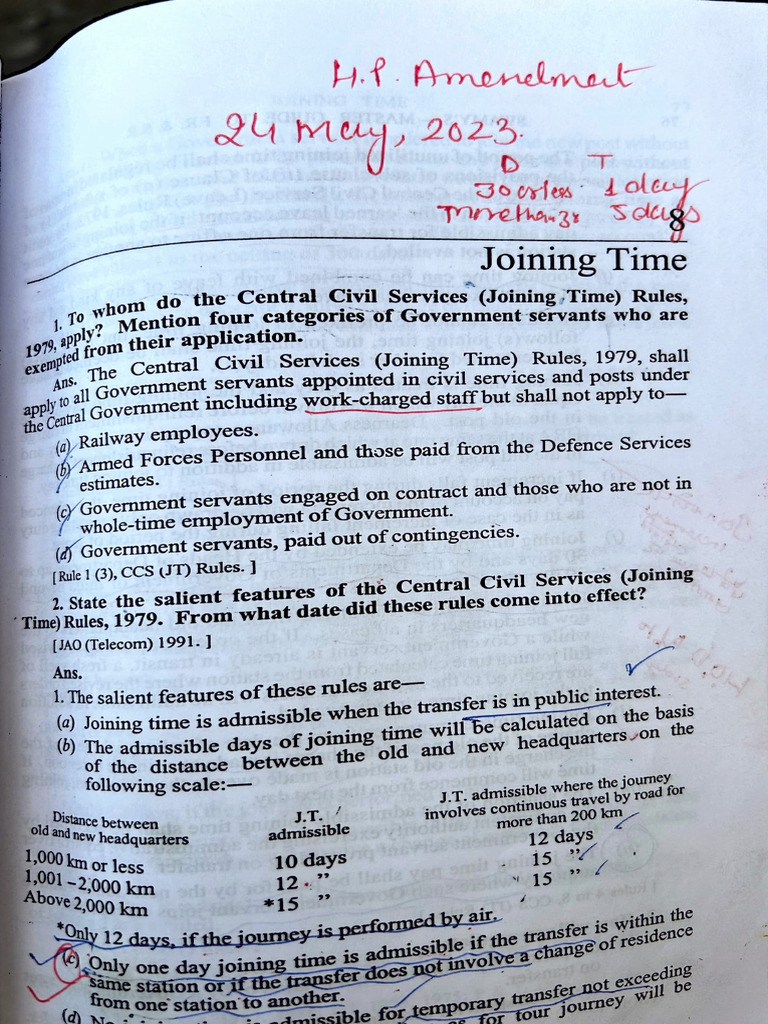 H.P. Amendment
24 May, 2023.
D T
30 or less 1 day
more than 30 5 days
8
Joining Time
1. To whom do the Central Civil Services (Joining Time) Rules,
1979, apply? Mention four categories of Government servants who are
exempted from their application.
Ans. The Central Civil Services (Joining Time) Rules, 1979, shall
apply to all Government servants appointed in civil services and posts under
the Central Government including work-charged staff but shall not apply to—
(a) Railway employees.
(b) Armed Forces Personnel and those paid from the Defence Services
estimates.
(c) Government servants engaged on contract and those who are not in
whole-time employment of Government.
(d) Government servants, paid out of contingencies.
[ Rule 1 (3), CCS (JT) Rules. ]
2. State the salient features of the Central Civil Services (Joining
Time) Rules, 1979. From what date did these rules come into effect?
[ JAO (Telecom) 1991. ]
Ans.
1. The salient features of these rules are—
(a) Joining time is admissible when the transfer is in public interest.
(b) The admissible days of joining time will be calculated on the basis
of the distance between the old and new headquarters on the
following scale:—
Distance between old and new headquarters J.T. admissible J.T. admissible where the journey involves continuous travel by road for more than 200 km
1,000 km or less 10 days 12 days
1,001 – 2,000 km 12 ” 15 ”
Above 2,000 km *15 ” 15 ”
*Only 12 days, if the journey is performed by air.
(c) Only one day joining time is admissible if the transfer is within the
same station or if the transfer does not involve a change of residence
from one station to another.
(d) No admissible for temporary transfer not exceeding
for tour journey will be